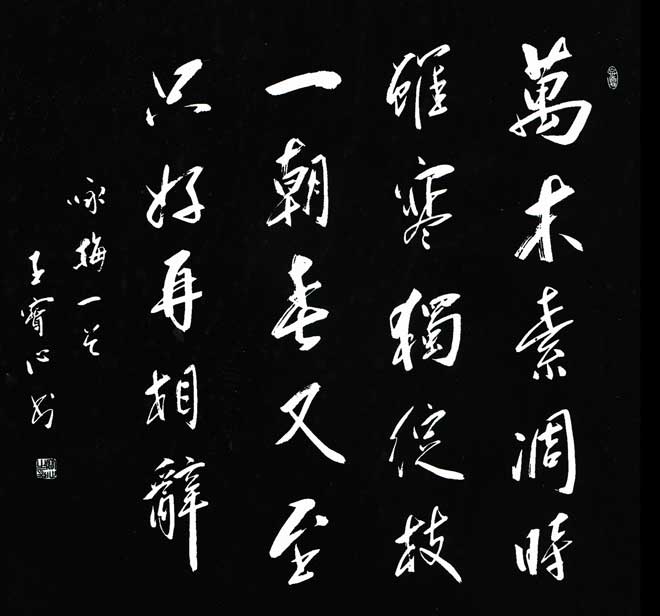 萬木素凋時
雖寒獨綻枝
一朝春又至
只好再相辭
詠梅一首
王寶心書